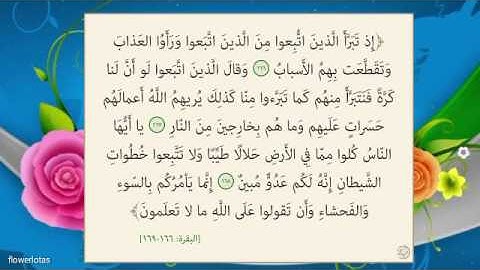 ﴿إِذ تَبَرَّأَ الَّذينَ اتُّبِعوا مِنَ الَّذينَ اتَّبَعوا وَرَأَوُا العَذابَ
وَتَقَطَّعَت بِهِمُ الأَسبابُ ﴿١٦٦﴾ وَقالَ الَّذينَ اتَّبَعوا لَو أَنَّ لَنا
كَرَّةً فَنَتَبَرَّأَ مِنهُم كَما تَبَرَّءوا مِنّا كَذٰلِكَ يُريهِمُ اللَّهُ أَعمالَهُم
حَسَراتٍ عَلَيهِم وَما هُم بِخارِجينَ مِنَ النّارِ ﴿١٦٧﴾ يا أَيُّهَا
النّاسُ كُلوا مِمّا فِي الأَرضِ حَلالًا طَيِّبًا وَلا تَتَّبِعوا خُطُواتِ
الشَّيطانِ إِنَّهُ لَكُم عَدُوٌّ مُبينٌ ﴿١٦٨﴾ إِنَّما يَأمُرُكُم بِالسّوءِ
وَالفَحشاءِ وَأَن تَقولوا عَلَى اللَّهِ ما لا تَعلَمونَ﴾
[البقرة: ١٦٦-١٦٩]
flowerlotas